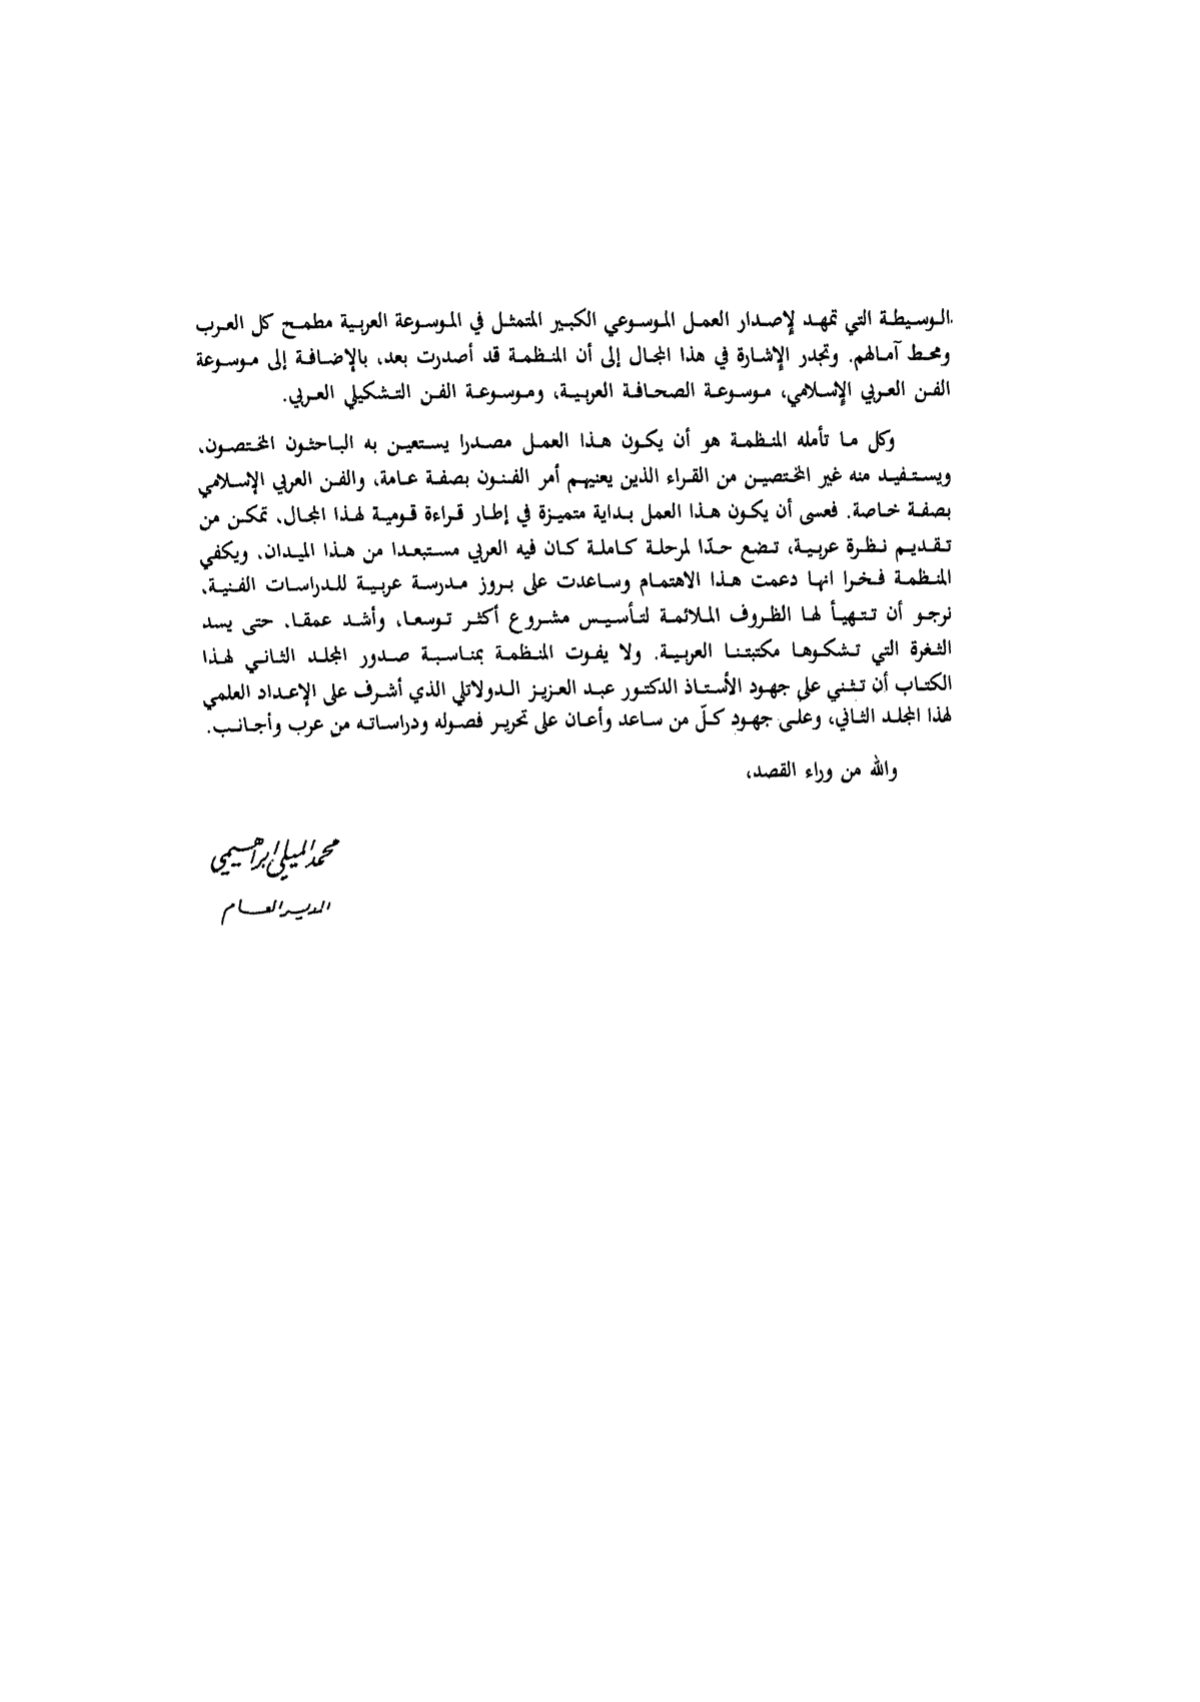 الوسيطة التي تمهد لإصدار العمل الموسوعي الكبير المتمثل في الموسوعة العربية مطمح كل العرب
ومحط آمالهم. وتجدر الإشارة في هذا المجال إلى أن المنظمة قد أصدرت بعد، بالإضافة إلى موسوعة
الفن العربي الإسلامي، موسوعة الصحافة العربية، وموسوعة الفن التشكيلي العربي.
وكل ما تأمله المنظمة هو أن يكون هذا العمل مصدرا يستعين به الباحثون المختصون،
ويستفيد منه غير المختصين من القراء الذين يعنيهم أمر الفنون بصفة عامة، والفن العربي الإسلامي
بصفة خاصة. فعسى أن يكون هذا العمل بداية متميزة في إطار قراءة قومية لهذا المجال، تمكن من
تقديم نظرة عربية، تضع حدّا لمرحلة كاملة كان فيه العربي مستبعدا من هذا الميدان. ويكفي
المنظمة فخرا انها دعمت هذا الاهتمام وساعدت على بروز مدرسة عربية للدراسات الفنية،
نرجو أن تتهيأ لها الظروف الملائمة لتأسيس مشروع أكثر توسعا، وأشد عمقا، حتى يسد
الثغرة التي تشكوها مكتبتنا العربية. ولا يفوت المنظمة بمناسبة صدور المجلد الثاني لهذا
الكتاب أن تثني على جهود الأستاذ الدكتور عبد العزيز الدولاتلي الذي أشرف على الإعداد العلمي
لهذا المجلد الثاني، وعلى جهود كلّ من ساعد وأعان على تحرير فصوله ودراساته من عرب وأجانب.
والله من وراء القصد،
محمد الميلي إبراهيمي
المدير العام